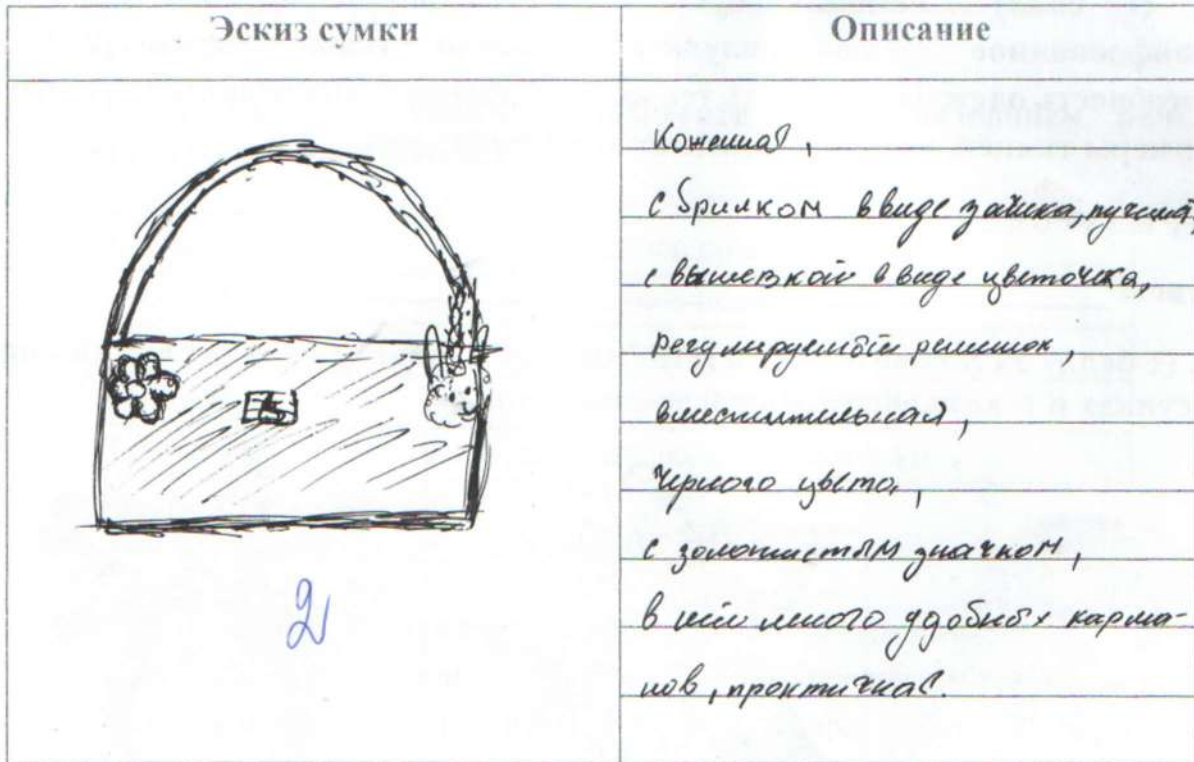 Эскиз сумки
Описание
Кожаная,
с брилком в виде зайка,
с вышевкой в виде цветочка,
регулируемый ремешок,
вместительная,
черного цвета,
с золотистым значком,
в ней много удобных карма-
нов, практичная.
2